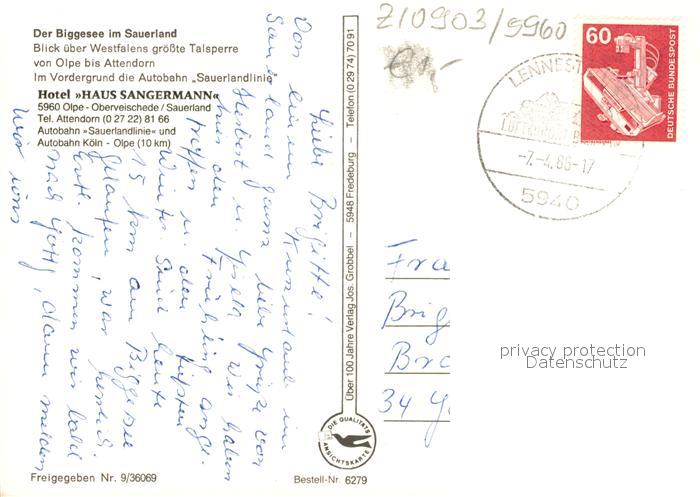 Der Biggesee im Sauerland
Blick über Westfalens größte Talsperre
von Olpe bis Attendorn
Im Vordergrund die Autobahn „Sauerlandlinie“
Hotel »HAUS SANGERMANN«
5960 Olpe - Oberveischede / Sauerland
Tel. Attendorn (0 27 22) 81 66
Autobahn »Sauerlandlinie« und
Autobahn Köln - Olpe (10 km)
Liebe Brigitte!
Von einem Kurzurlaub im
Sauerland ganz liebe Grüße von
Herbert u. Gisela. Wir haben
hier den Frühling ange-
troffen u. den tiefsten
Winter. Sind heute
15 km am Biggesee
gelaufen, war herrlich.
Evtl. kommen wir bald
nach Gött, dann melden
wir uns
Freigegeben Nr. 9/36069
Bestell-Nr. 6279
Über 100 Jahre Verlag Jos. Grobbel – 5948 Fredeburg – Telefon (0 29 74) 70 91
DIE QUALITÄTS
ANSICHTSKARTE
Z10903/5960
60
DEUTSCHE BUNDESPOST
LENNEST
-7.-4.86-17
5940
Fra
Brig
Bro
34 Gö
privacy protection
Datenschutz